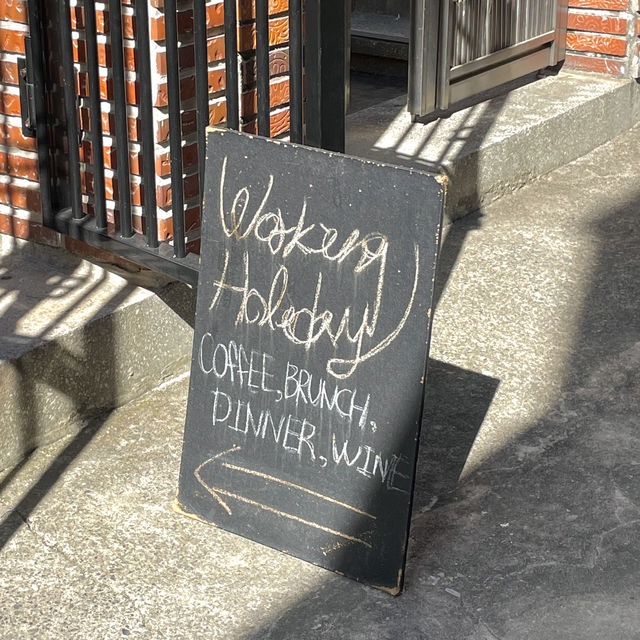 Working
Holiday
COFFEE, BRUNCH,
DINNER, WINE